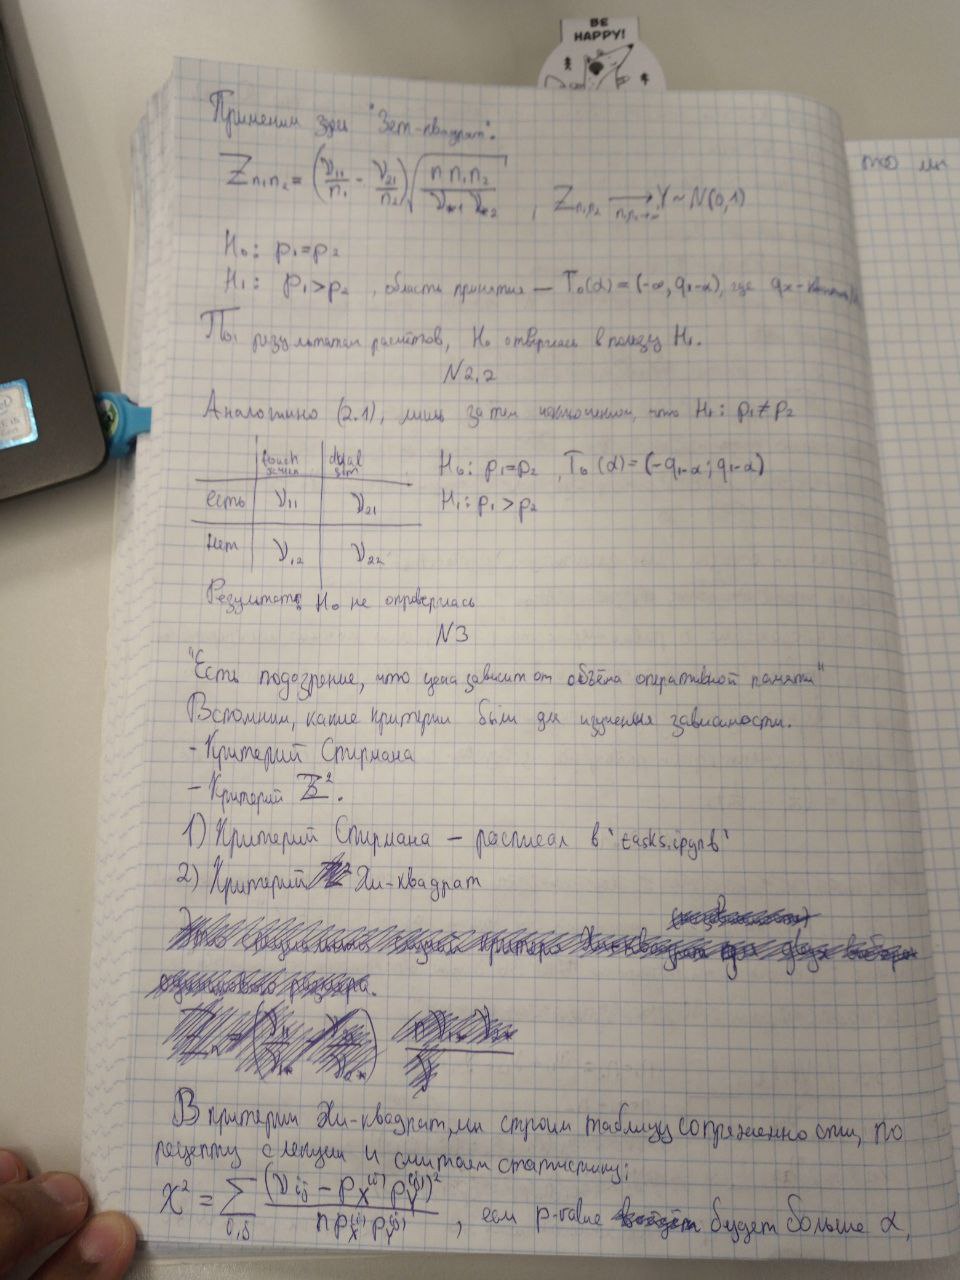 BE
HAPPY!
Применим здесь "Зет-квадрат".
Z_{n_1 n_2} = (ν_{11}/n_1 - ν_{21}/n_2) √(n n_1 n_2 / ν_{*1} ν_{*2}) , Z_{n_1 n_2} → Y ~ N(0,1)
H_0: p_1 = p_2
H_1: p_1 > p_2, область принятия — T_0(α) = (-∞, q_{1-α}), где
По результатам расчётов, H_0 отверглась в пользу H_1.
N2.2
Аналогично (2.1), лишь за тем исключением, что H_1: p_1 ≠ p_2
touch screen | dual sim
есть | ν_{11} | ν_{21}
нет | ν_{12} | ν_{22}
H_0: p_1 = p_2, T_0(α) = (-q_{1-α}; q_{1-α})
H_1: p_1 > p_2
Результат: H_0 не опроверглась
N3
"Есть подозрение, что цена зависит от объёма оперативной памяти"
Вспомним, какие критерии были для изучения зависимости.
- Критерий Спирмана
- Критерий
1) Критерий Спирмана — расписал в 'tasks.ipynb'
2) Критерий Хи-квадрат
В критерии Хи-квадрат, мы строим таблицу сопряженности, по
рецепту с лекции и считаем статистику:
X^2 = Σ (ν_{ij} - p_X^{(i)} p_Y^{(j)})^2 / n p_X^{(i)} p_Y^{(j)} , если p-value будет больше α,